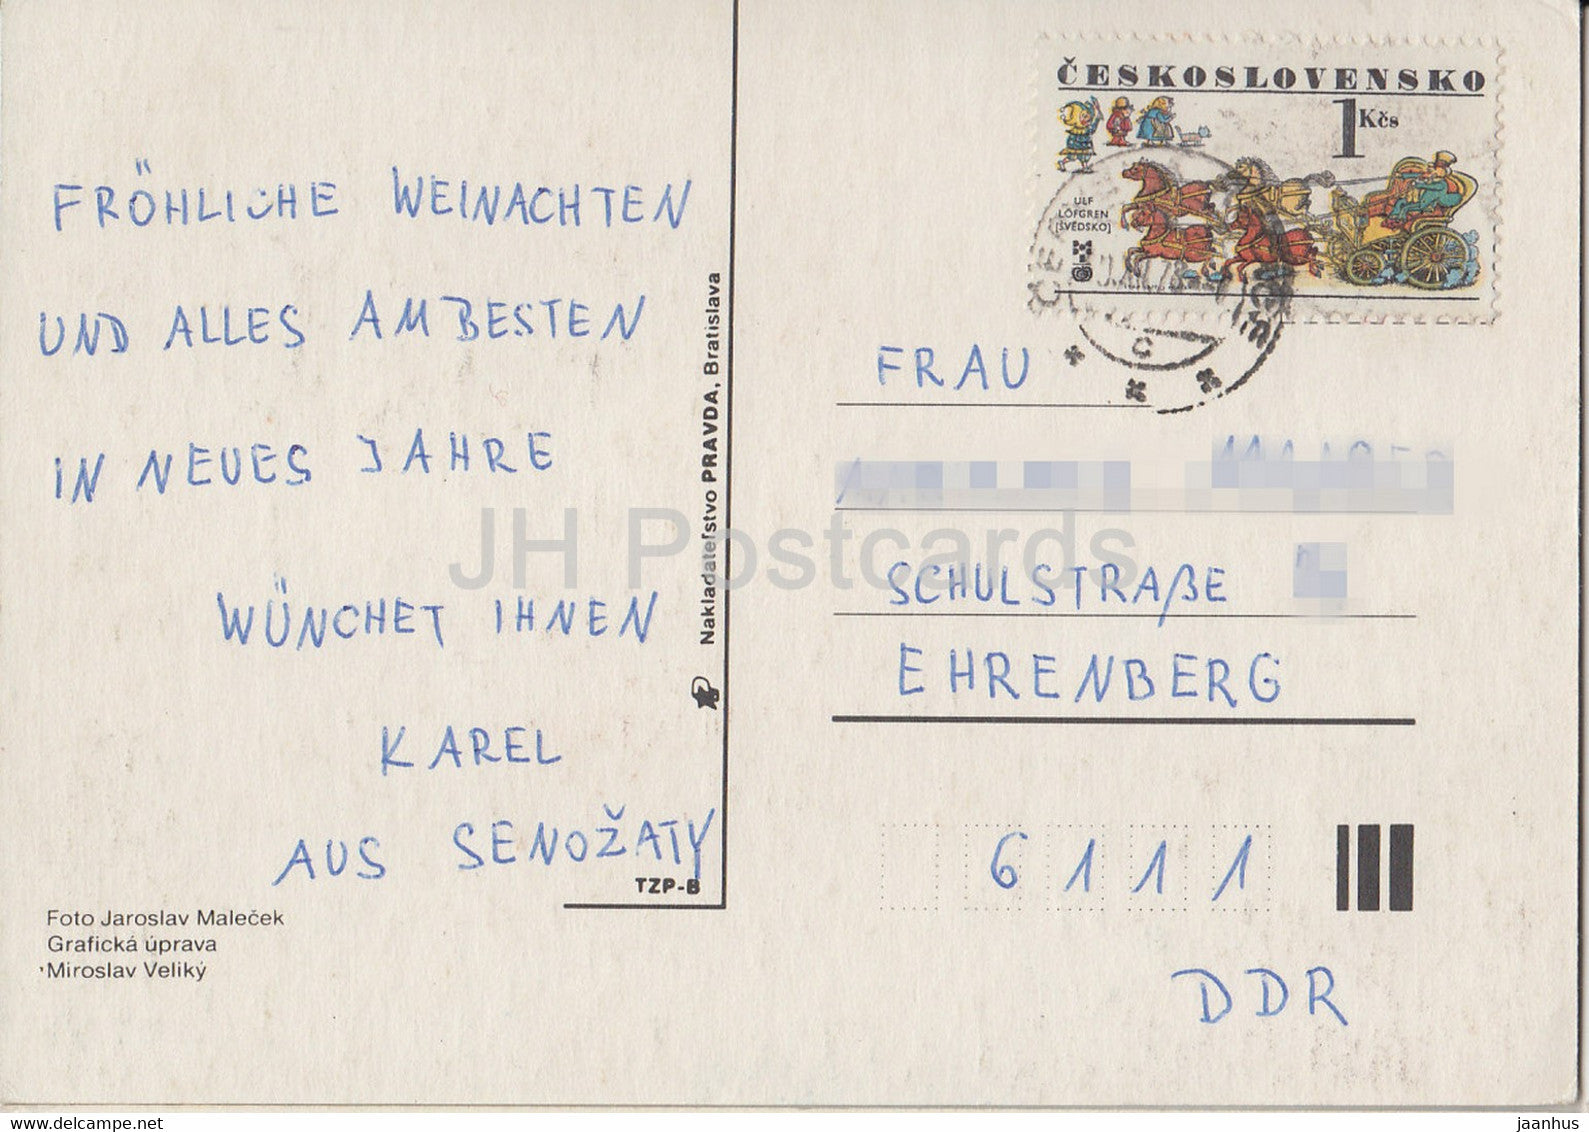 FRÖHLICHE WEINACHTEN
UND ALLES AM BESTEN
IN NEUES JAHRE
WÜNCHET IHNEN
KAREL
AUS SENOŽATY
TZP-B
Foto Jaroslav Maleček
Grafická úprava
Miroslav Veliký
Nakladateľstvo PRAVDA, Bratislava
ČESKOSLOVENSKO
1 Kčs
ULF
LÖFGREN
[ŠVÉDSKO]
FRAU
SCHULSTRAßE
EHRENBERG
6111
DDR
JH Postcards
hippostcard.com
jaanhus